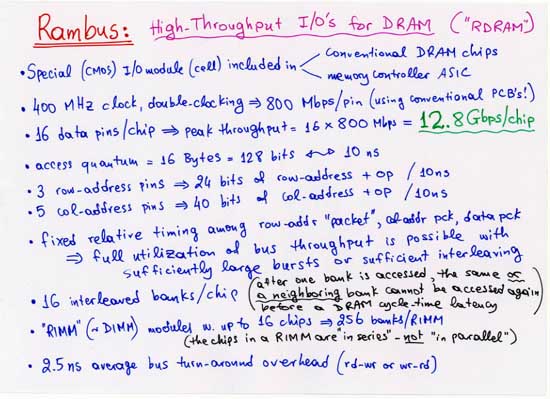 Rambus: High-Throughput I/O's for DRAM ("RDRAM")
• Special (CMOS) I/O module (cell) included in < conventional DRAM chips
memory controller ASIC
• 400 MHz clock, double-clocking ⇒ 800 Mbps/pin (using conventional PCB's!)
• 16 data pins/chip ⇒ peak throughput = 16 × 800 Mbps = 12.8 Gbps/chip
• access quantum = 16 Bytes = 128 bits ↔ 10 ns
• 3 row-address pins ⇒ 24 bits of row-address + op / 10ns
• 5 col-address pins ⇒ 40 bits of col-address + op / 10ns
• fixed relative timing among row-addr "packet", col-addr pck, data pck
⇒ full utilization of bus throughput is possible with
sufficiently large bursts or sufficient interleaving
• 16 interleaved banks/chip (after one bank is accessed, the same or
a neighboring bank cannot be accessed again
before a DRAM cycle-time latency)
• "RIMM" (~DIMM) modules w. up to 16 chips ⇒ 256 banks/RIMM
(the chips in a RIMM are "in series" - not "in parallel")
• 2.5ns average bus turn-around overhead (rd-wr or wr-rd)